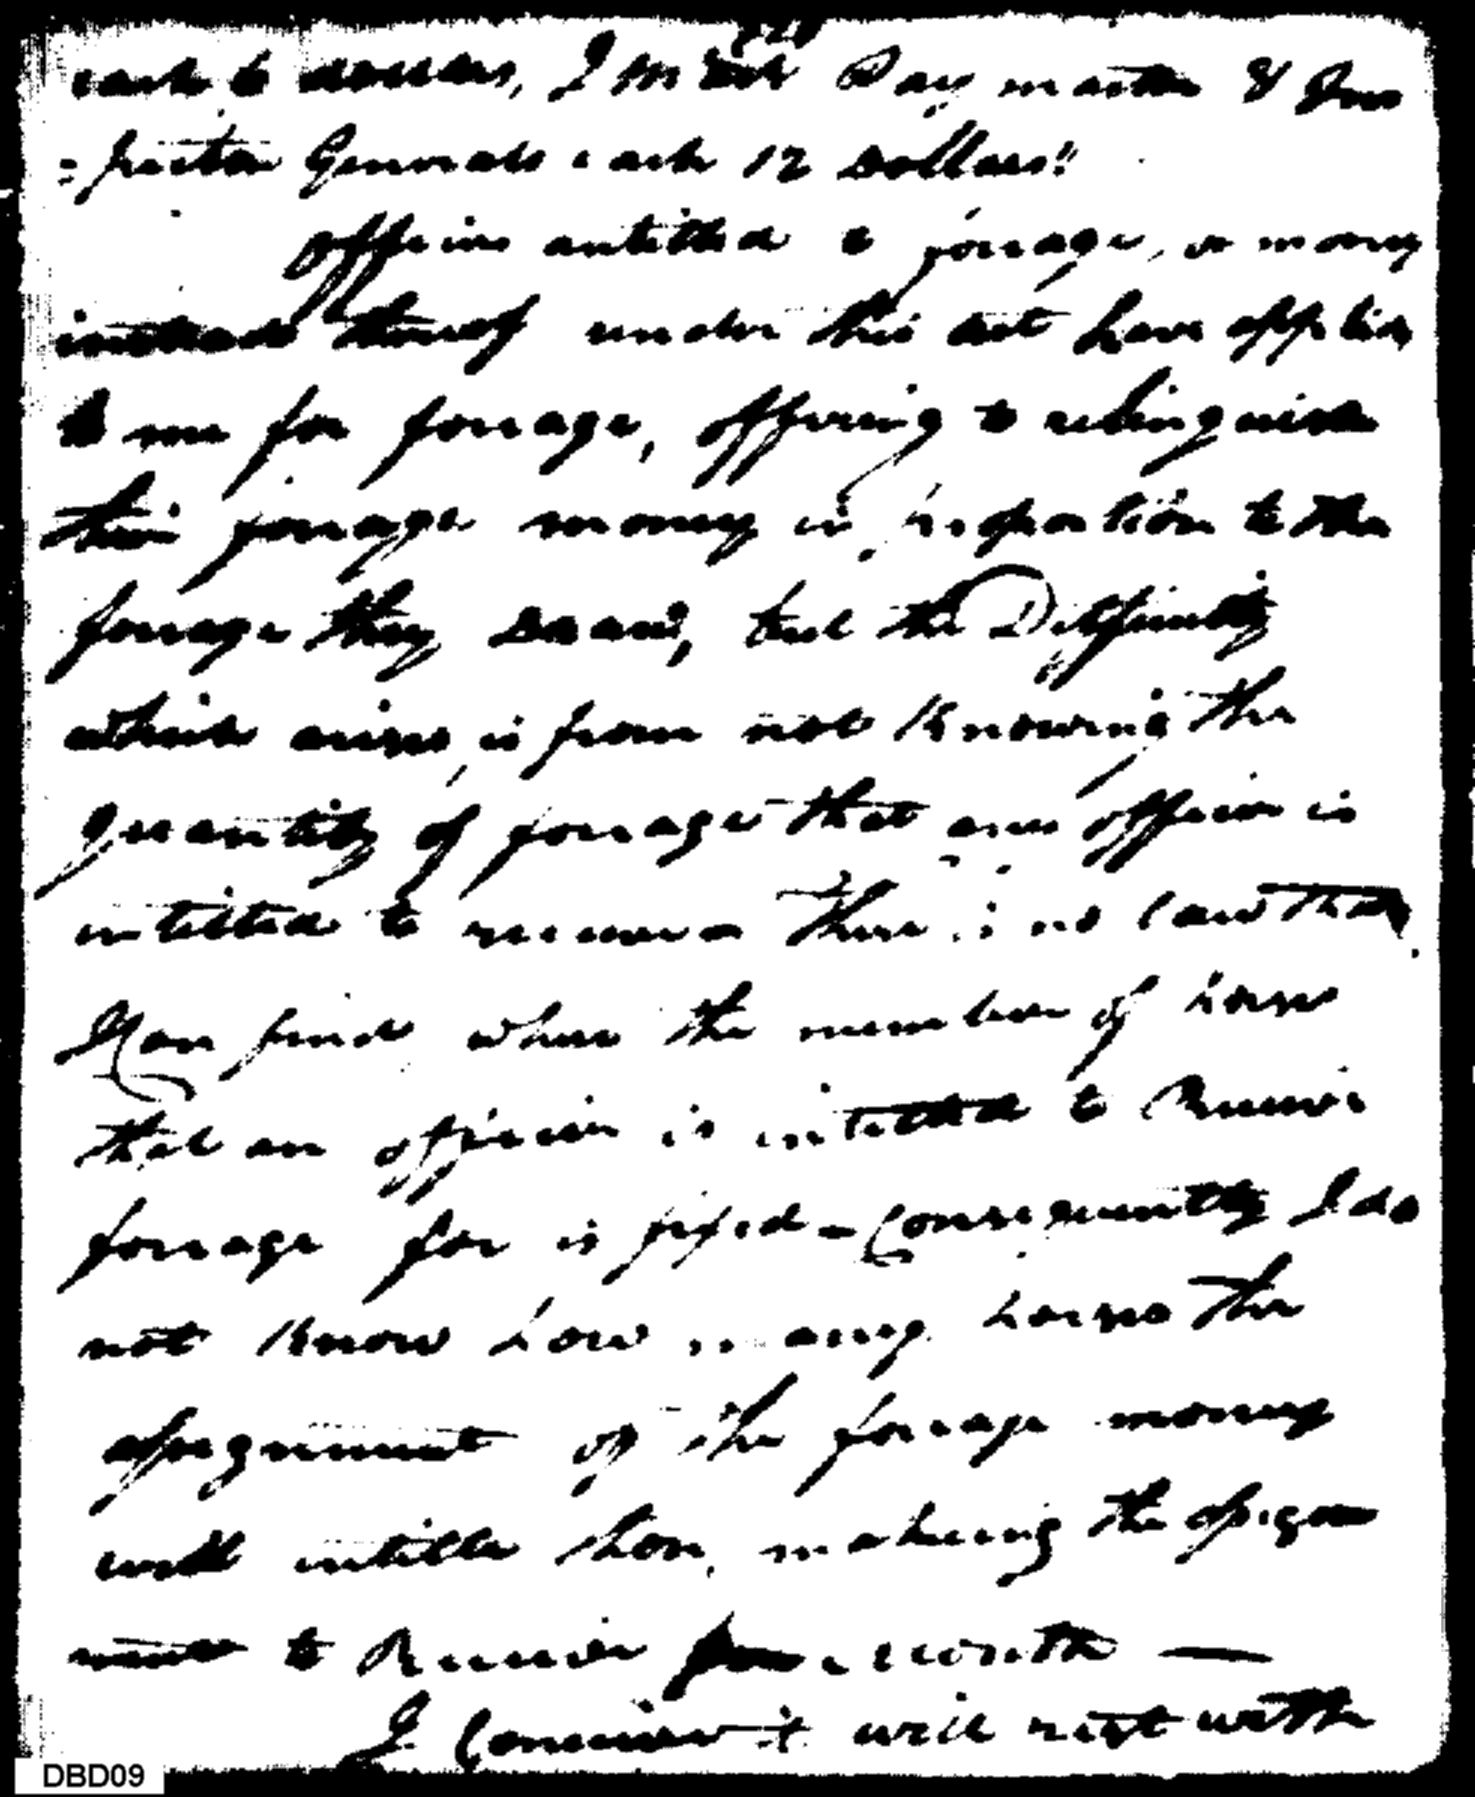 each 6 dollars, Qr Mr Pay master & Ins
=pector Generals each 12 Dollars"
Officers intitled to forrage, or money
instead thereof under this act have applied
to me for forrage, offering to relinquish
their forrage money in proportion to the
forrage they draw, but the Difficulty
which arises, is from not Knowing the
Quantity of forrage that an officer is
intitled to receive – there is no law that
I Can find where the number of horses
that an officer is intitled to Receive
forrage for is fixed – Consequently I do
not Know how many horses the
assignment of the forrage money
will intitle thon, making the assign
ment to Receive a month —
I Conceive it will rest with
DBD09